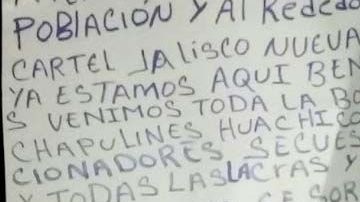 POBLACIÓN Y AL REDEDO
CARTEL JALISCO NUEVA
YA ESTAMOS AQUI BEN
S VENIMOS TODA LA BO
CHAPULINES HUACHICO
CIONADORES SECUES
Y TODAS LAS LACRAS Y